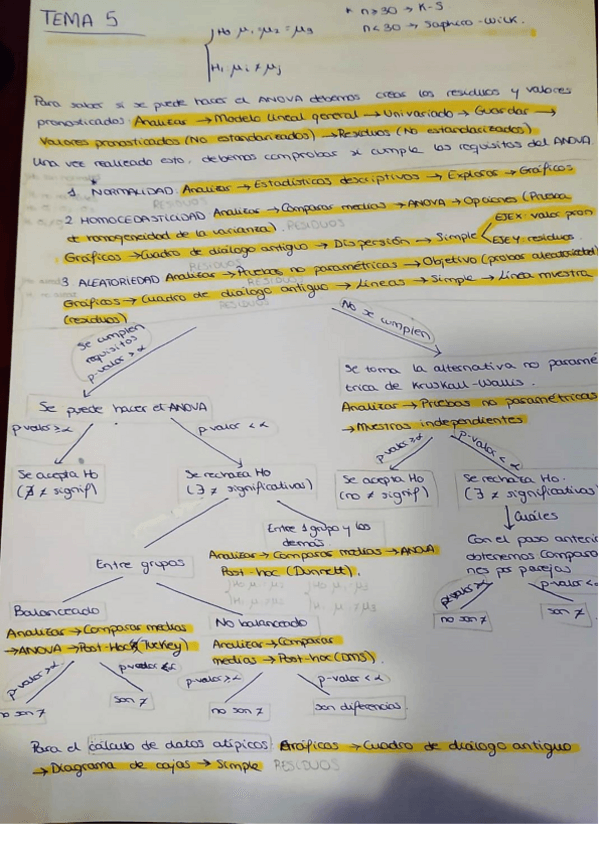 TEMA 5
* n≥30 → K-S
n<30 → Saphiro-Wilk.
H0 μ1 μ2 = μ3
H1: μi ≠ μj
Para saber si se puede hacer el ANOVA debemos crear los residuos y valores
pronosticados: Analizar → Modelo lineal general → Univariado → Guardar →
Valores pronosticados (No estandarizados) → Residuos (No estandarizados)
Una vez realizado esto, debemos comprobar si cumple los requisitos del ANOVA
1. *NORMALIDAD: Analizar → Estadísticos descriptivos → Explorar → Gráficos
RESIDUOS
2 HOMOCEDASTICIDAD Analizar → Comparar medias → ANOVA → Opciones (Prueba
de homogeneidad de la varianza). RESIDUOS
EJEX: valor pron
Gráficos → Cuadro de diálogo antiguo → Dispersión → Simple
EJEY residuos.
RESIDUOS
3. ALEATORIEDAD Analizar → Pruebas no paramétricas → Objetivo (probar aleatoriedad)
RESIDUOS
Gráficos → Cuadro de diálogo antiguo → Líneas → Simple → Línea muestra
(residuos) RESIDUOS
Se cumplen
requisitos
p-valor > α
No se cumplen
Se puede hacer el ANOVA
Se toma la alternativa no paramé
trica de Kruskall-Wallis.
Analizar → Pruebas no paramétricas
→ Muestras independientes
p-valor > α
p-valor < α
p-valor > α
p-valor < α
Se acepta H0
(∄ ≠ signif)
Se rechaza H0
(∃ ≠ significativas)
Se acepta H0
(no ≠ signif)
Se rechaza H0.
(∃ ≠ significativas)
Cuáles
Con el paso anterio
obtenemos comparacio
nes por parejas
Entre grupos
Entre 1 grupo y los
demás.
Analizar → Comparar medias → ANOVA
Post-hoc (Dunnett).
p-valor > α
p-valor < α
no son ≠
son ≠
Balanceado
Analizar → Comparar medias
→ ANOVA → Post-Hoc (Turkey)
No balanceado
Analizar → Comparar
medias → Post-hoc (DMS).
p-valor > α
p-valor < α
p-valor > α
p-valor < α
no son ≠
son ≠
no son ≠
son diferencias.
Para el cálculo de datos atípicos: Gráficos → Cuadro de diálogo antiguo
→ Diagrama de cajas → Simple RESIDUOS